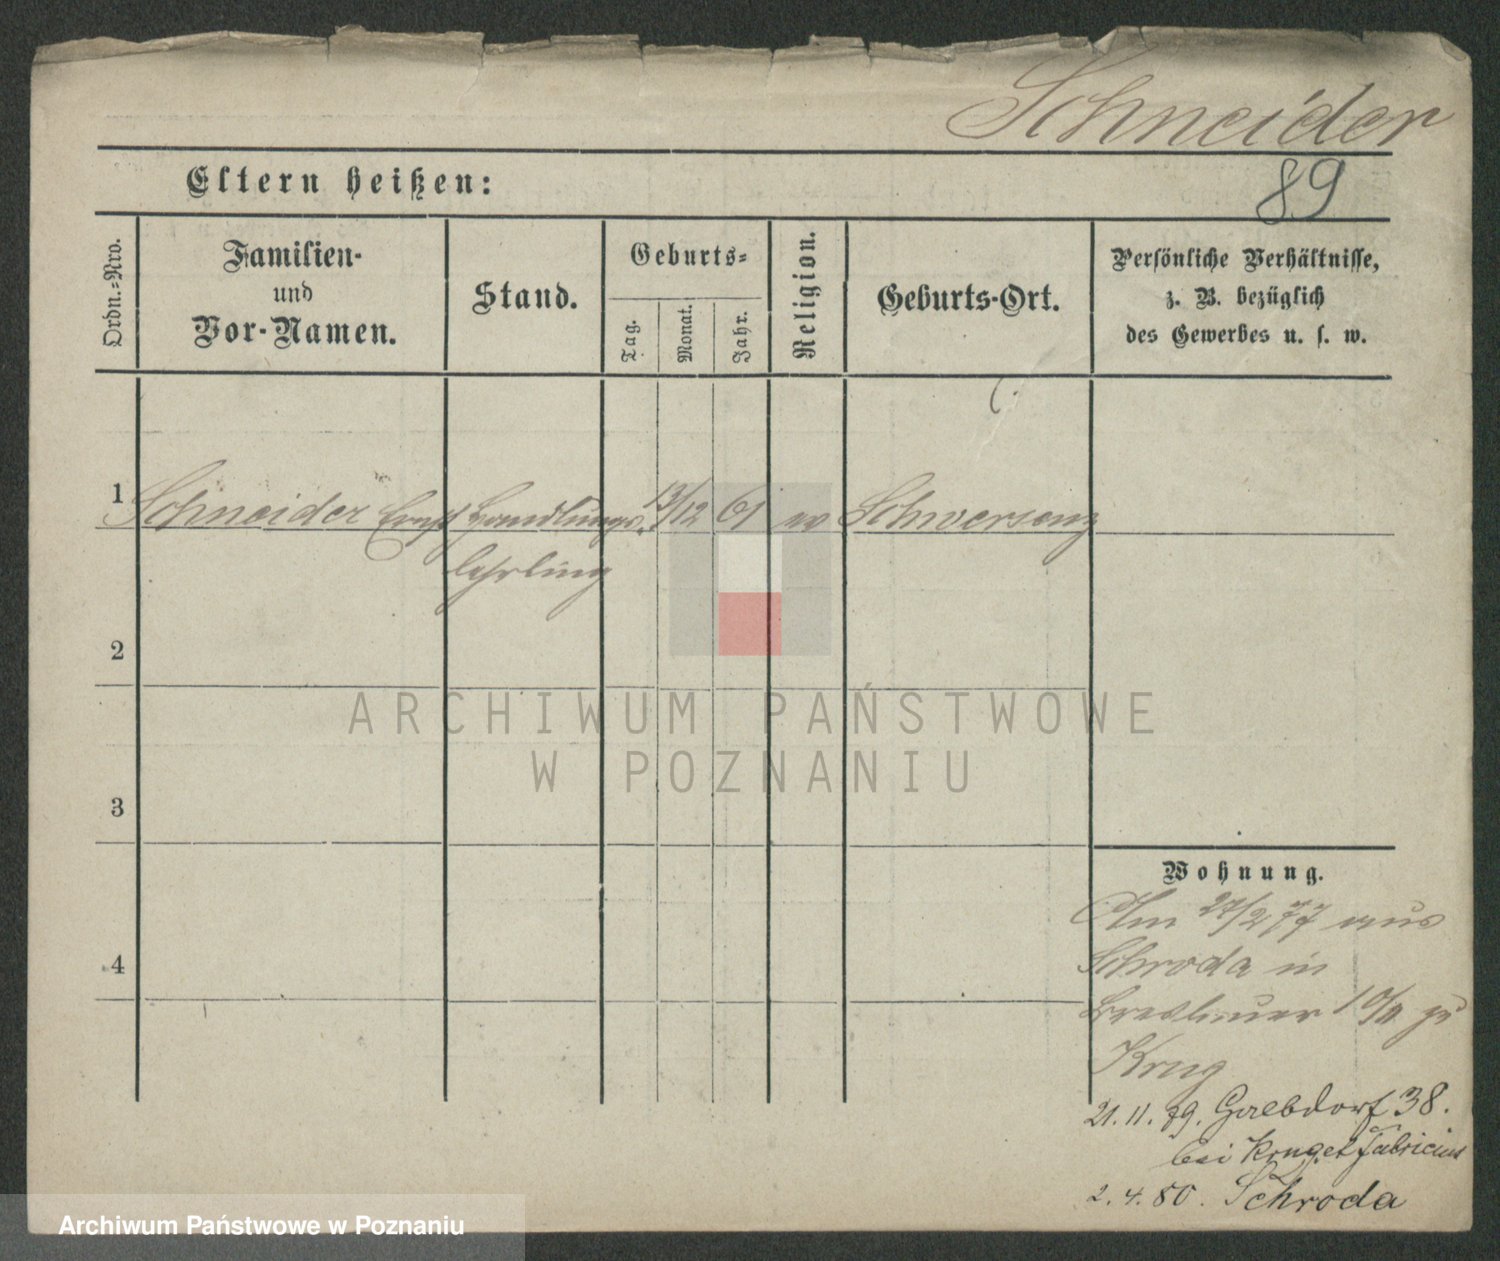 Schneider
89
Eltern heißen:
Ordn.-Nro.
Familien-
und
Vor-Namen.
Stand.
Geburts-
Tag.
Monat.
Jahr.
Religion.
Geburts-Ort.
Persönliche Verhältnisse,
z. B. bezüglich
des Gewerbes u. s. w.
1
Schneider Ernst Handlungs- 13/12 61 ev Schwersenz
lehrling
2
3
4
ARCHIWUM PAŃSTWOWE
W POZNANIU
Wohnung.
Am 27/2 77 aus
Schroda in
Breslauer zu
Krug
21.11.79. 38.
bei Krug et Fabricius
2.4.80. Schroda
Archiwum Państwowe w Poznaniu